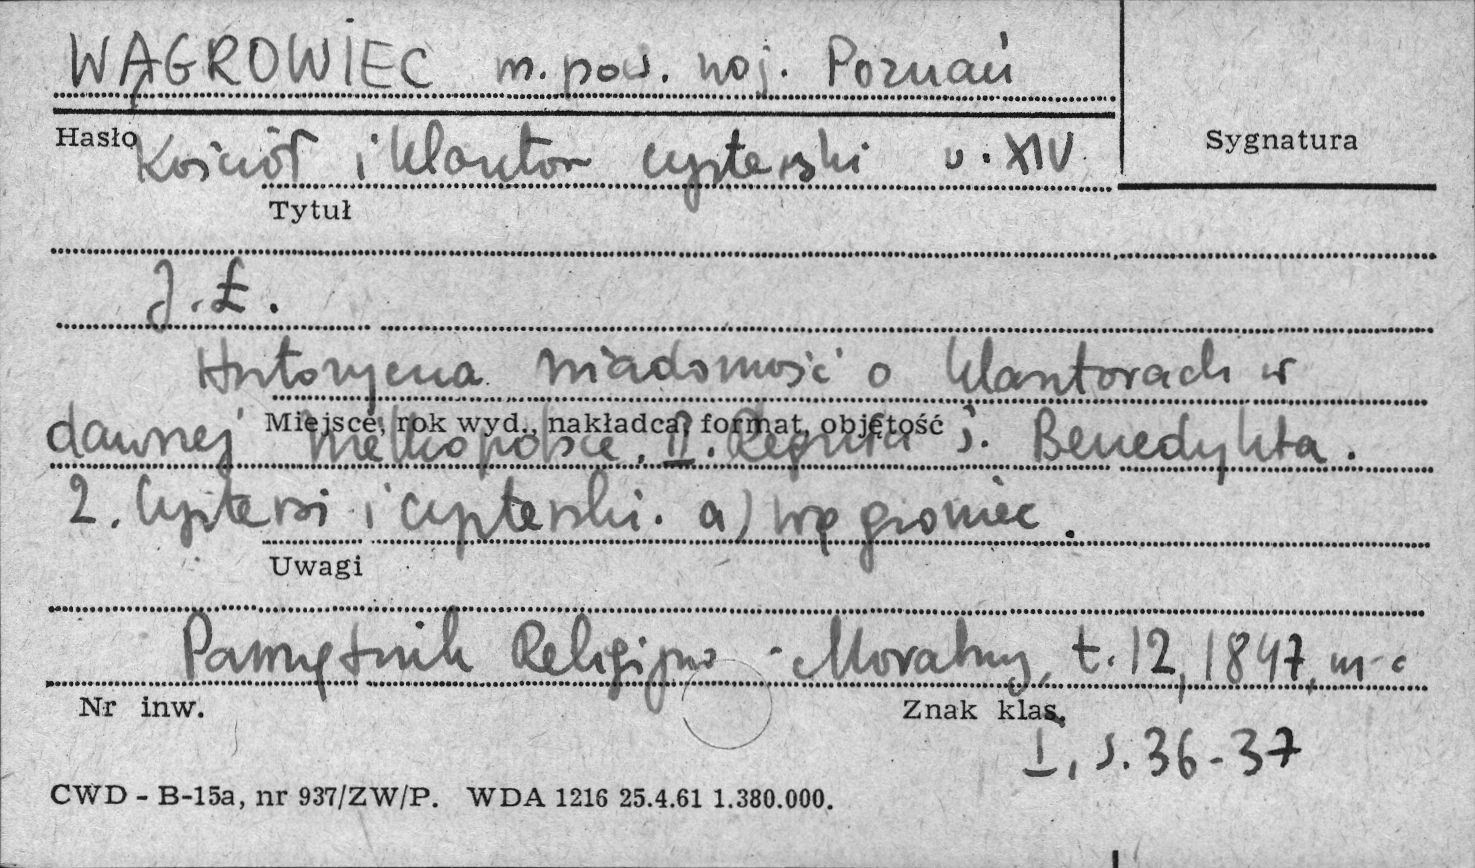 WĄGROWIEC m. pow. woj. Poznań
Hasło
Sygnatura
Kościół i klasztor cysterski w. XIV
Tytuł
J. Ł.
Historyczna wiadomość o klasztorach w
Miejsce, rok wyd., nakładca, format, objętość
dawnej Wielkopolsce. II. Reguła ś. Benedykta.
2. Cystersi i cysterski. a) Węgrowiec.
Uwagi
Pamiętnik Religijno - Moralny, t. 12, 1847, m-c
Nr inw.
Znak klas.
I, s. 36-37
CWD - B-15a, nr 937/ZW/P. WDA 1216 25.4.61 1.380.000.